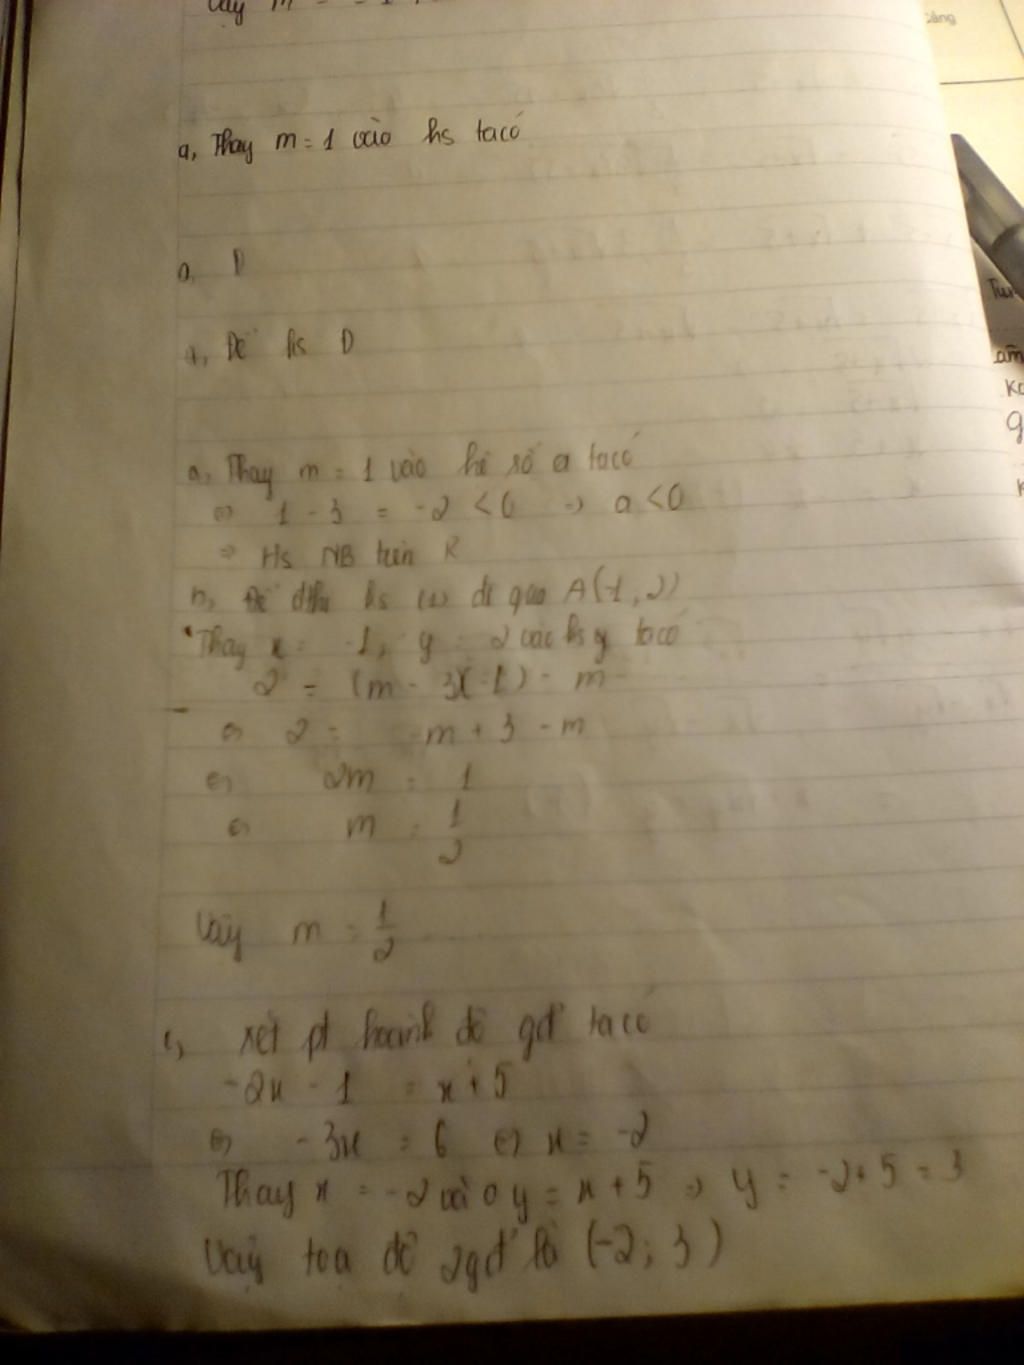 Vậy m = -1
cầng
a, Thay m = 1 vào hs ta có
a, D
a, Để hs D
a, Thay m = 1 vào hê số a ta có
⇔ 1 - 3 = -2 < 0 → a < 0
⇒ Hs NB trên R
b, Để đths hs (1) đi qua A(-1, 2)
Thay x = -1, y = 2 vào hs y ta có
2 = (m - 3)(-1) - m
⇔ 2 = -m + 3 - m
⇔ 2m = 1
⇔ m = 1/2
Vậy m = 1/2
c, Xét pt hoành độ gđ ta có
-2x - 1 = x + 5
⇔ -3x = 6 ⇔ x = -2
Thay x = -2 vào y = x + 5 ⇒ y = -2 + 5 = 3
Vậy toạ độ 2gđ là (-2; 3)